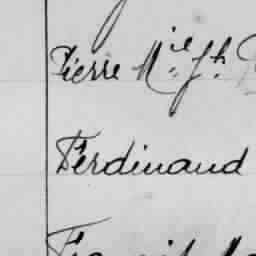 Pierre M.ie Jh.
Ferdinand